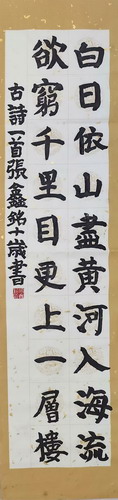 白日依山盡黃河入海流
欲窮千里目更上一層樓
古詩一首張鑫銘十歲書